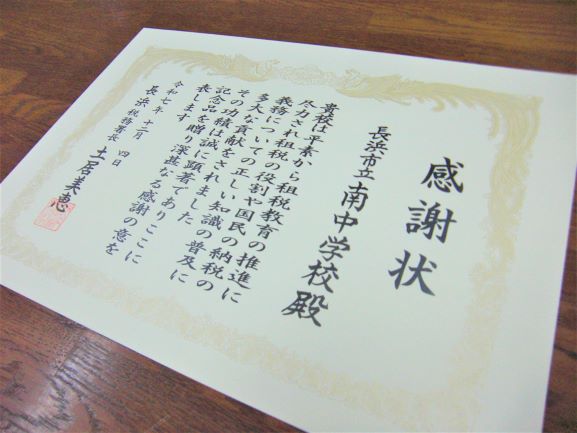 感謝状
長浜市立南中学校殿
貴校は平素から租税教育の推進に
尽力され租税の役割や国民の納税の
義務についての正しい知識の普及に
多大な貢献をされました
その功績は誠に顕著でありここに
記念品を贈り深甚なる感謝の意を
表します
令和七年十二月四日
長浜税務署長 土居美恵